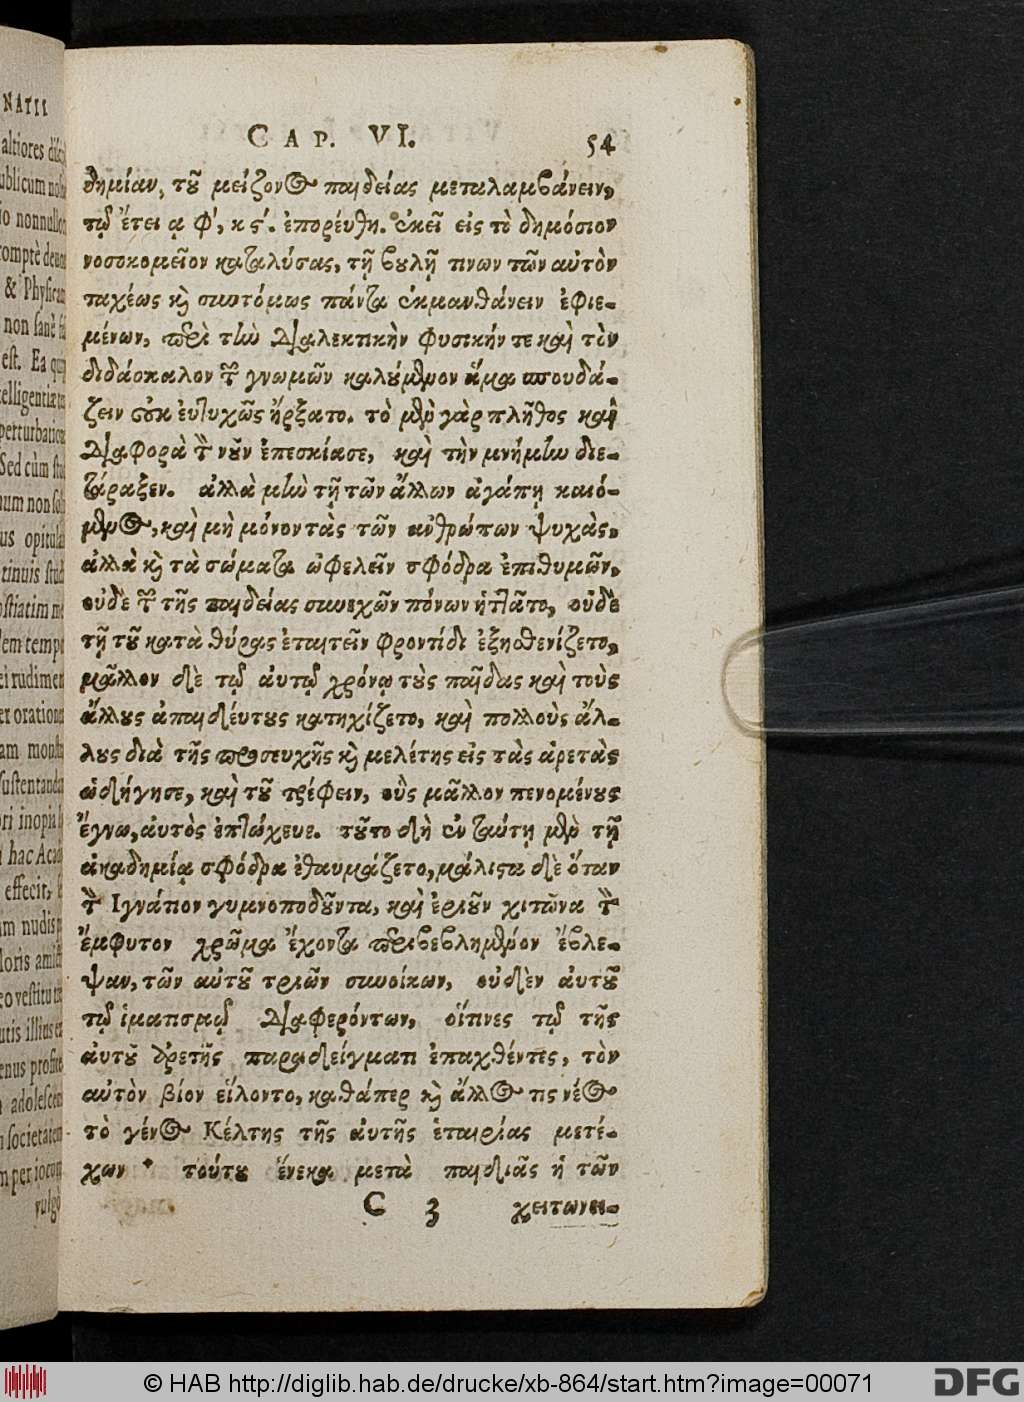 CAP. VI. 54
θημίαν, τοῦ μείζονος παιδείας μεταλαμβάνειν,
τῷ ἔτει α φ', κ ς'. ἐπορεύθη. ἐκεῖ εἰς τὸ δημόσιον
νοσοκομεῖον καταλύσας, τῇ βουλῇ τινων τῶν αὐτὸν
ταχέως καὶ συντόμως πάντα ἐκμανθάνειν ἐφιε-
μένων, περὶ τὴν Διαλεκτικὴν φυσικήν τε καὶ τὸν
διδάσκαλον τῶν γνωμῶν καλούμενον ἅμα σπουδά-
ζειν οὐκ εὐτυχῶς ἤρξατο. τὸ μὲν γὰρ πλῆθος καὶ
Διαφορὰ τὸν νοῦν ἐπεσκίασε, καὶ τὴν μνήμην διε-
τάραξεν. ἀλλὰ μὴν τῇ τῶν ἄλλων ἀγάπῃ καιό-
μενος, καὶ μὴ μόνον τὰς τῶν ἀνθρώπων ψυχὰς,
ἀλλὰ καὶ τὰ σώματα ὠφελεῖν σφόδρα ἐπιθυμῶν,
οὐδε τῶν τῆς παιδείας συνεχῶν πόνων ἡττᾶτο, οὐδὲ
τῇ τοῦ κατὰ θύρας ἐπαιτεῖν φροντίδι ἐξησθενίζετο,
μᾶλλον δὲ τῷ αὐτῷ χρόνῳ τοὺς παῖδας καὶ τοὺς
ἄλλους ἀπαιδεύτους κατηχίζετο, καὶ πολλοὺς ἄλ-
λους διὰ τῆς προσευχῆς καὶ μελέτης εἰς τὰς ἀρετὰς
ὡδήγησε, καὶ τοῦ τρέφειν, οὓς μᾶλλον πενομένους
ἔγνω, αὐτὸς ἐπτώχευε. τοῦτο δὴ ἐν ταύτῃ μὲν τῇ
ἀκαδημίᾳ σφόδρα ἐθαυμάζετο, μάλιστα δὲ ὅταν
τὸν Ἰγνάτιον γυμνοποδοῦντα, καὶ ἐριοῦν χιτῶνα τὸν
ἔμφυτον χρῶμα ἔχοντα περιβεβλημένον ἔβλε-
ψαν, τῶν αὐτοῦ τριῶν συνοίκων, οὐδὲν αὐτοῦ
τῷ ἱματισμῷ Διαφερόντων, οἵτινες τῷ τῆς
αὐτοῦ ἀρετῆς παραδείγματι ἐπαχθέντες, τὸν
αὐτὸν βίον εἵλοντο, καθάπερ καὶ ἄλλος τις νέος
τὸ γένος Κέλτης τῆς αὐτῆς ἑταιρίας μετέ-
χων· τούτου ἕνεκα μετὰ παιδιᾶς ἡ τῶν
C 3 χειτωνει-
NATII
altiores
publicum
io nonnullos
&
non sanè
est. Ea
telligentiæ
perturbation
Sed cùm
num non
us opitula
tinuis stud
ostiatim
dem temp
ei rudimen
er oration
am
sustentanda
ori inopia
hac Acad
effecit,
m nudis
loris
eo vestitu
utis illius
adolescen
societatem
m per iocum
vulgò
© HAB http://diglib.hab.de/drucke/xb-864/start.htm?image=00071
DFG